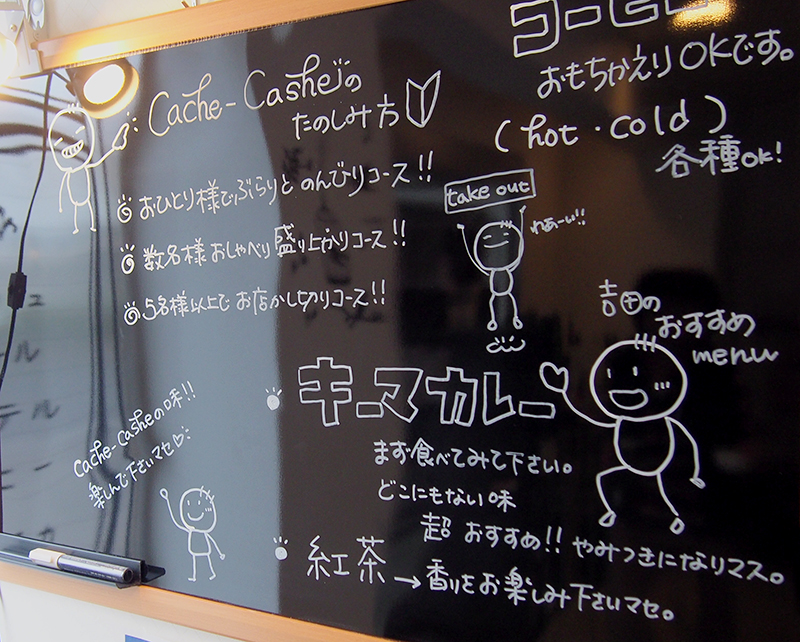 Cache-Casheの
たのしみ方
おひとり様でぶらりと のんびりコース!!
数名様 おしゃべり 盛り上がりコース!!
5名様以上で お店かし切りコース!!
cache-casheの味!!
楽しんで下さいマセ♡
コーヒー
おもちかえりOKです。
(hot・cold)
各種OK!
take out
わぁーい!!
吉田の
おすすめ
menu
キーマカレー
まず食べてみて下さい。
どこにもない味
超 おすすめ!! やみつきになりマス。
紅茶
→香りをお楽しみ下さいマセ。